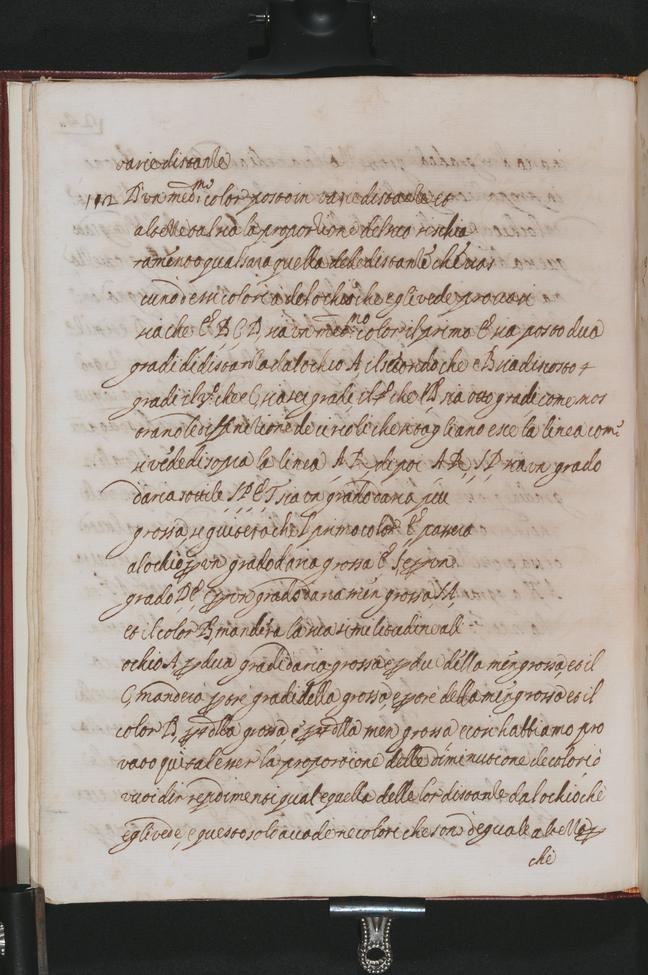 varie distantie
D'un med.mo color posto in varie distantie et
altezze tal sia la proportione del suo rischia
ramento qual sia quella delle distantie che cias
cuno d essi colori a da lochio che egli vede provasi
sia che E B C D sia un med.mo color il primo E sia posto dua
gradi di distantia da lochio A il secondo che è B sia discosto 4
gradi il 3.o che è C sia sei gradi il 4.o che è D sia otto gradi come mos
trano le diffinitioni de circoli che si tagliano esce la linea com.e
si vede di sopra la linea A R di poi A R S P sia un grado
d aria sottile S P E T sia un grado d aria piu
grossa seguiterà che 'l primo color E passerà
al ochio per un grado d aria grossa E S e per un
grado
grado d aria men grossa S A
et il color B manderà la sua similitudine all
ochio A per dua gradi d aria grossa e per dui della men grossa et il
C manderà per tre gradi della grossa e per tre della men grossa et il
color D per 4 della grossa e per 4 della men grossa e così habbiamo pro
vato qui tal esser la proportione delle diminutione de colori ò
vuoi dir perdimenti qual è quella delle lor distantie da lochio che
egli vede e questo solo accade ne colori che sono de equale altezza per
che